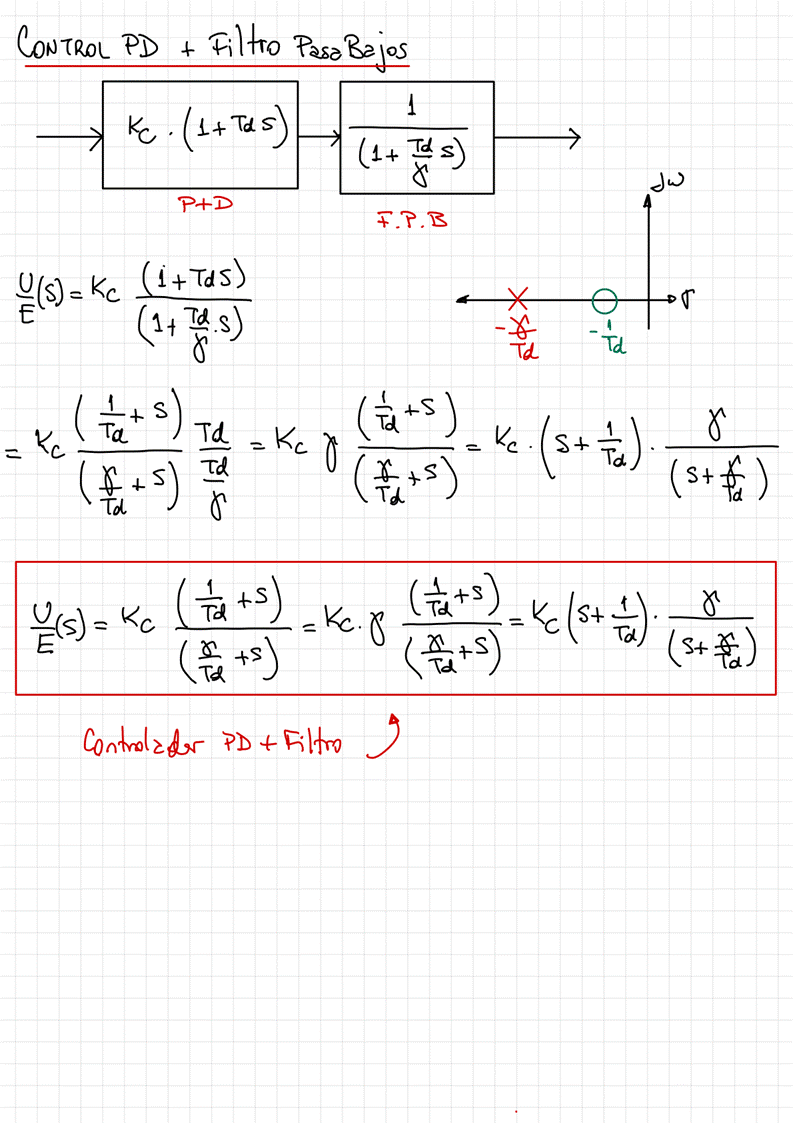 CONTROL PD + Filtro PasaBajos
Kc · (1 + Td s)
1 / (1 + Td/γ s)
P+D
F.P.B
jω
σ
-γ/Td
-1/Td
U/E(s) = Kc (1 + Td s) / (1 + Td/γ · s)
= Kc (1/Td + s) / (γ/Td + s) Td / (Td/γ) = Kc γ (1/Td + s) / (γ/Td + s) = Kc · (s + 1/Td) · γ / (s + γ/Td)
U/E(s) = Kc (1/Td + s) / (γ/Td + s) = Kc · γ (1/Td + s) / (γ/Td + s) = Kc (s + 1/Td) · γ / (s + γ/Td)
Controlador PD + Filtro